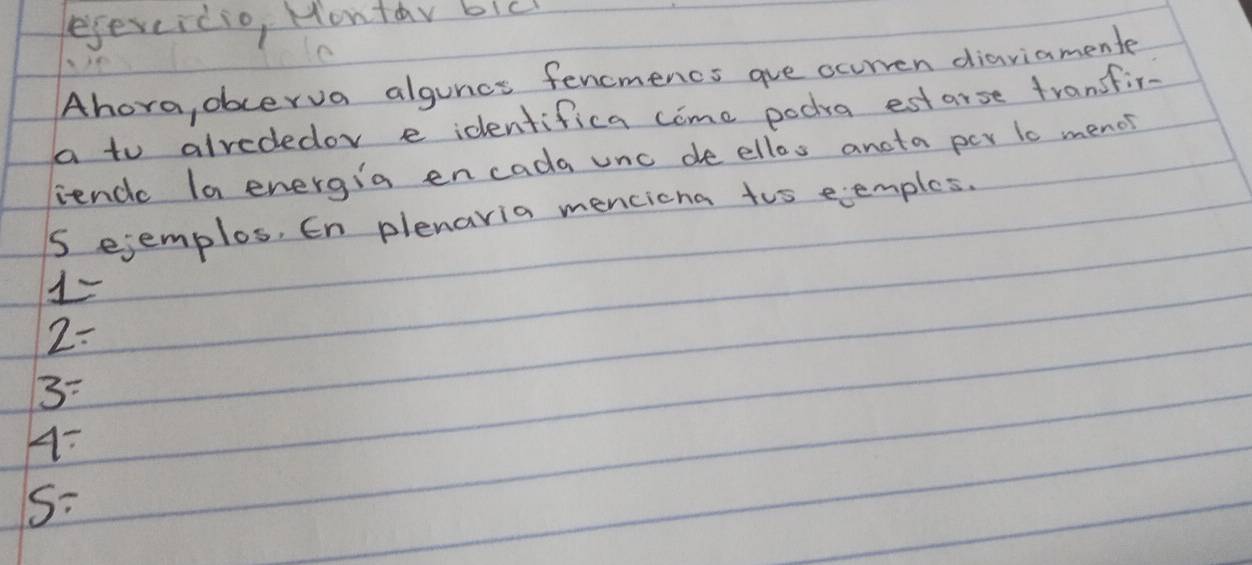 ejercicio, Montar bici
Ahora, obcerva algunos fenomenos que ocurren diariamente
a tu alrededor e identifica cómo podra estarse transfir-
iendo la energía en cada uno de ellos anota por lo menos
5 ejemplos. En plenaria menciona tus ejemplos.
1=
2=
3=
4=
5=